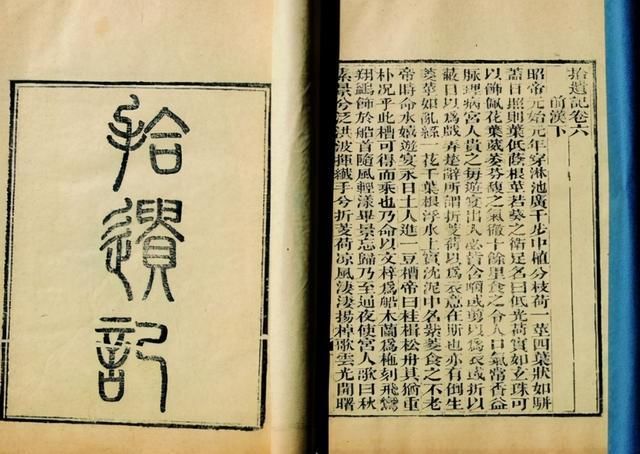 拾遺記
拾遺記卷六
前漢下
昭帝元始元年穿淋池廣千步中植分枝荷一莖四葉狀如駢
葢日照則葉低蔭根莖若葵之衛足名曰低光荷實如玄珠可
以飾佩花葉葳萎芬馥之氣徹十餘里食之令人口氣常香益
脉理病宮人貴之每遊宴出入必皆含嚼或剪以爲衣或折以
蔽日以爲戲弄楚辭所謂折芰荷以爲衣意在斯也亦有倒生
菱莖如亂絲一花千葉根浮水上實沈泥中名紫菱食之不老
帝時命水嬉遊宴永日土人進一豆槽帝曰桂楫松舟其猶重
朴况乎此槽可得而乘也乃命以文梓爲船木蘭爲柂刻飛鸞
翔鷁飾於船首隨風輕漾畢景忘歸乃至通夜使宮人歌曰秋
素景兮泛洪波揮纖手兮折芰荷凉風淒淒揚棹歌雲光開曙